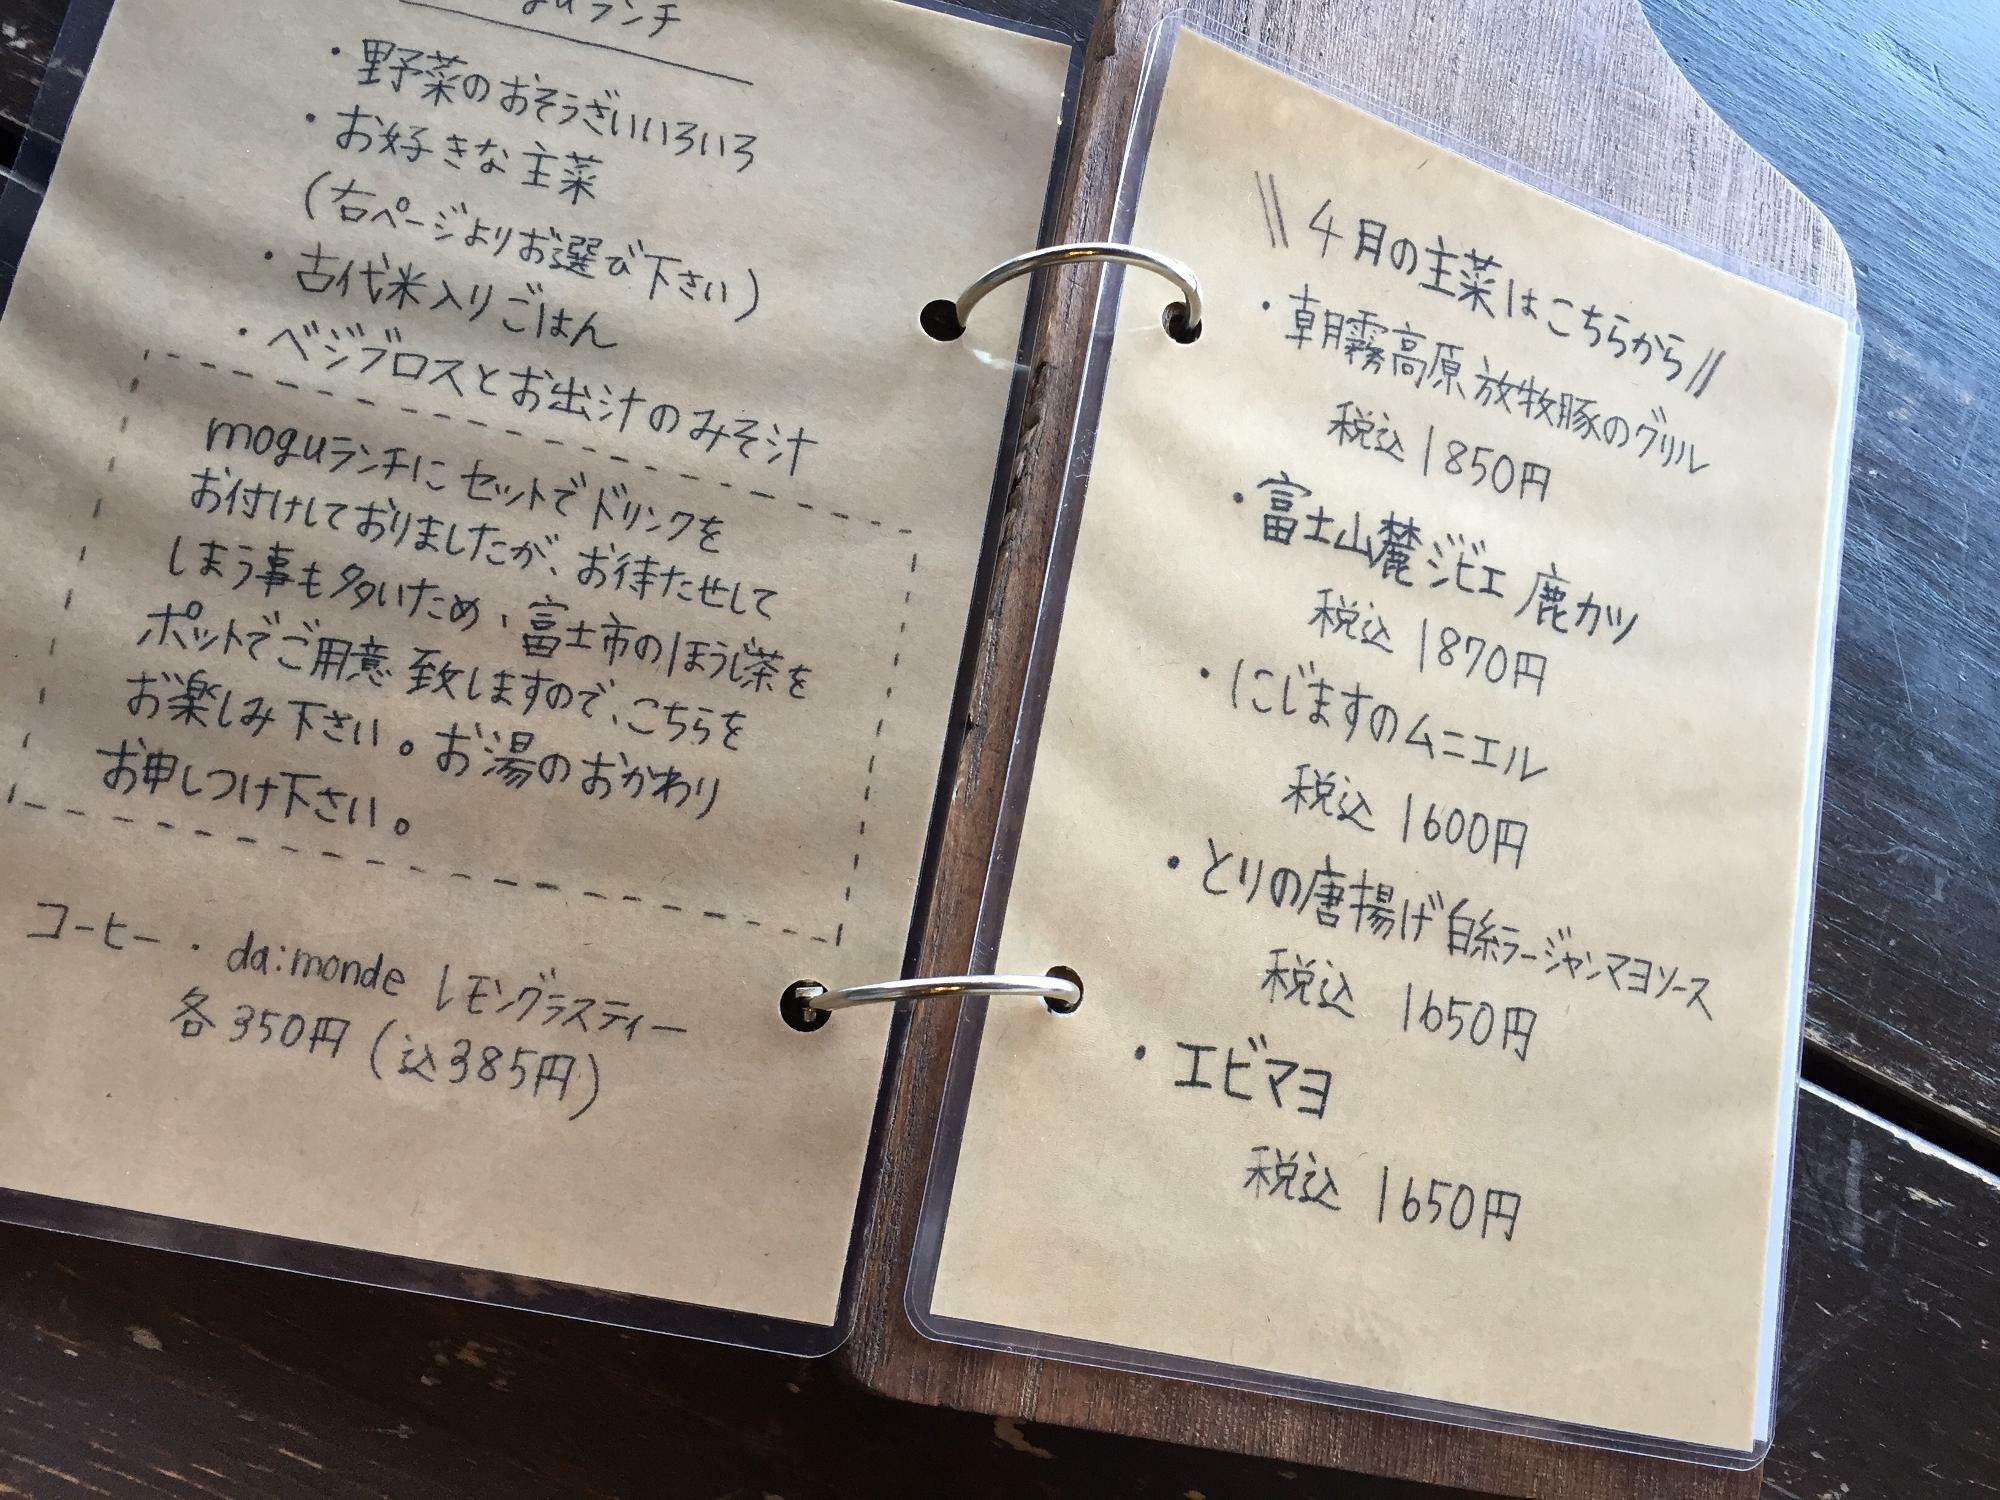 guランチ
・野菜のおそうざいいろいろ
・お好きな主菜
(右ページよりお選び下さい)
・古代米入りごはん
・ベジブロスとお出汁のみそ汁
moguランチにセットでドリンクを
お付けしておりましたが、お待たせして
しまう事も多いため、富士市のほうじ茶を
ポットでご用意致しますので、こちらを
お楽しみ下さい。お湯のおかわり
お申しつけ下さい。
コーヒー・da:monde レモングラスティー
各350円(込385円)
\\4月の主菜はこちらから//
・朝霧高原放牧豚のグリル
税込1850円
・富士山麓ジビエ 鹿カツ
税込1870円
・にじますのムニエル
税込1600円
・とりの唐揚げ 白糸ラージャンマヨソース
税込 1650円
・エビマヨ
税込 1650円